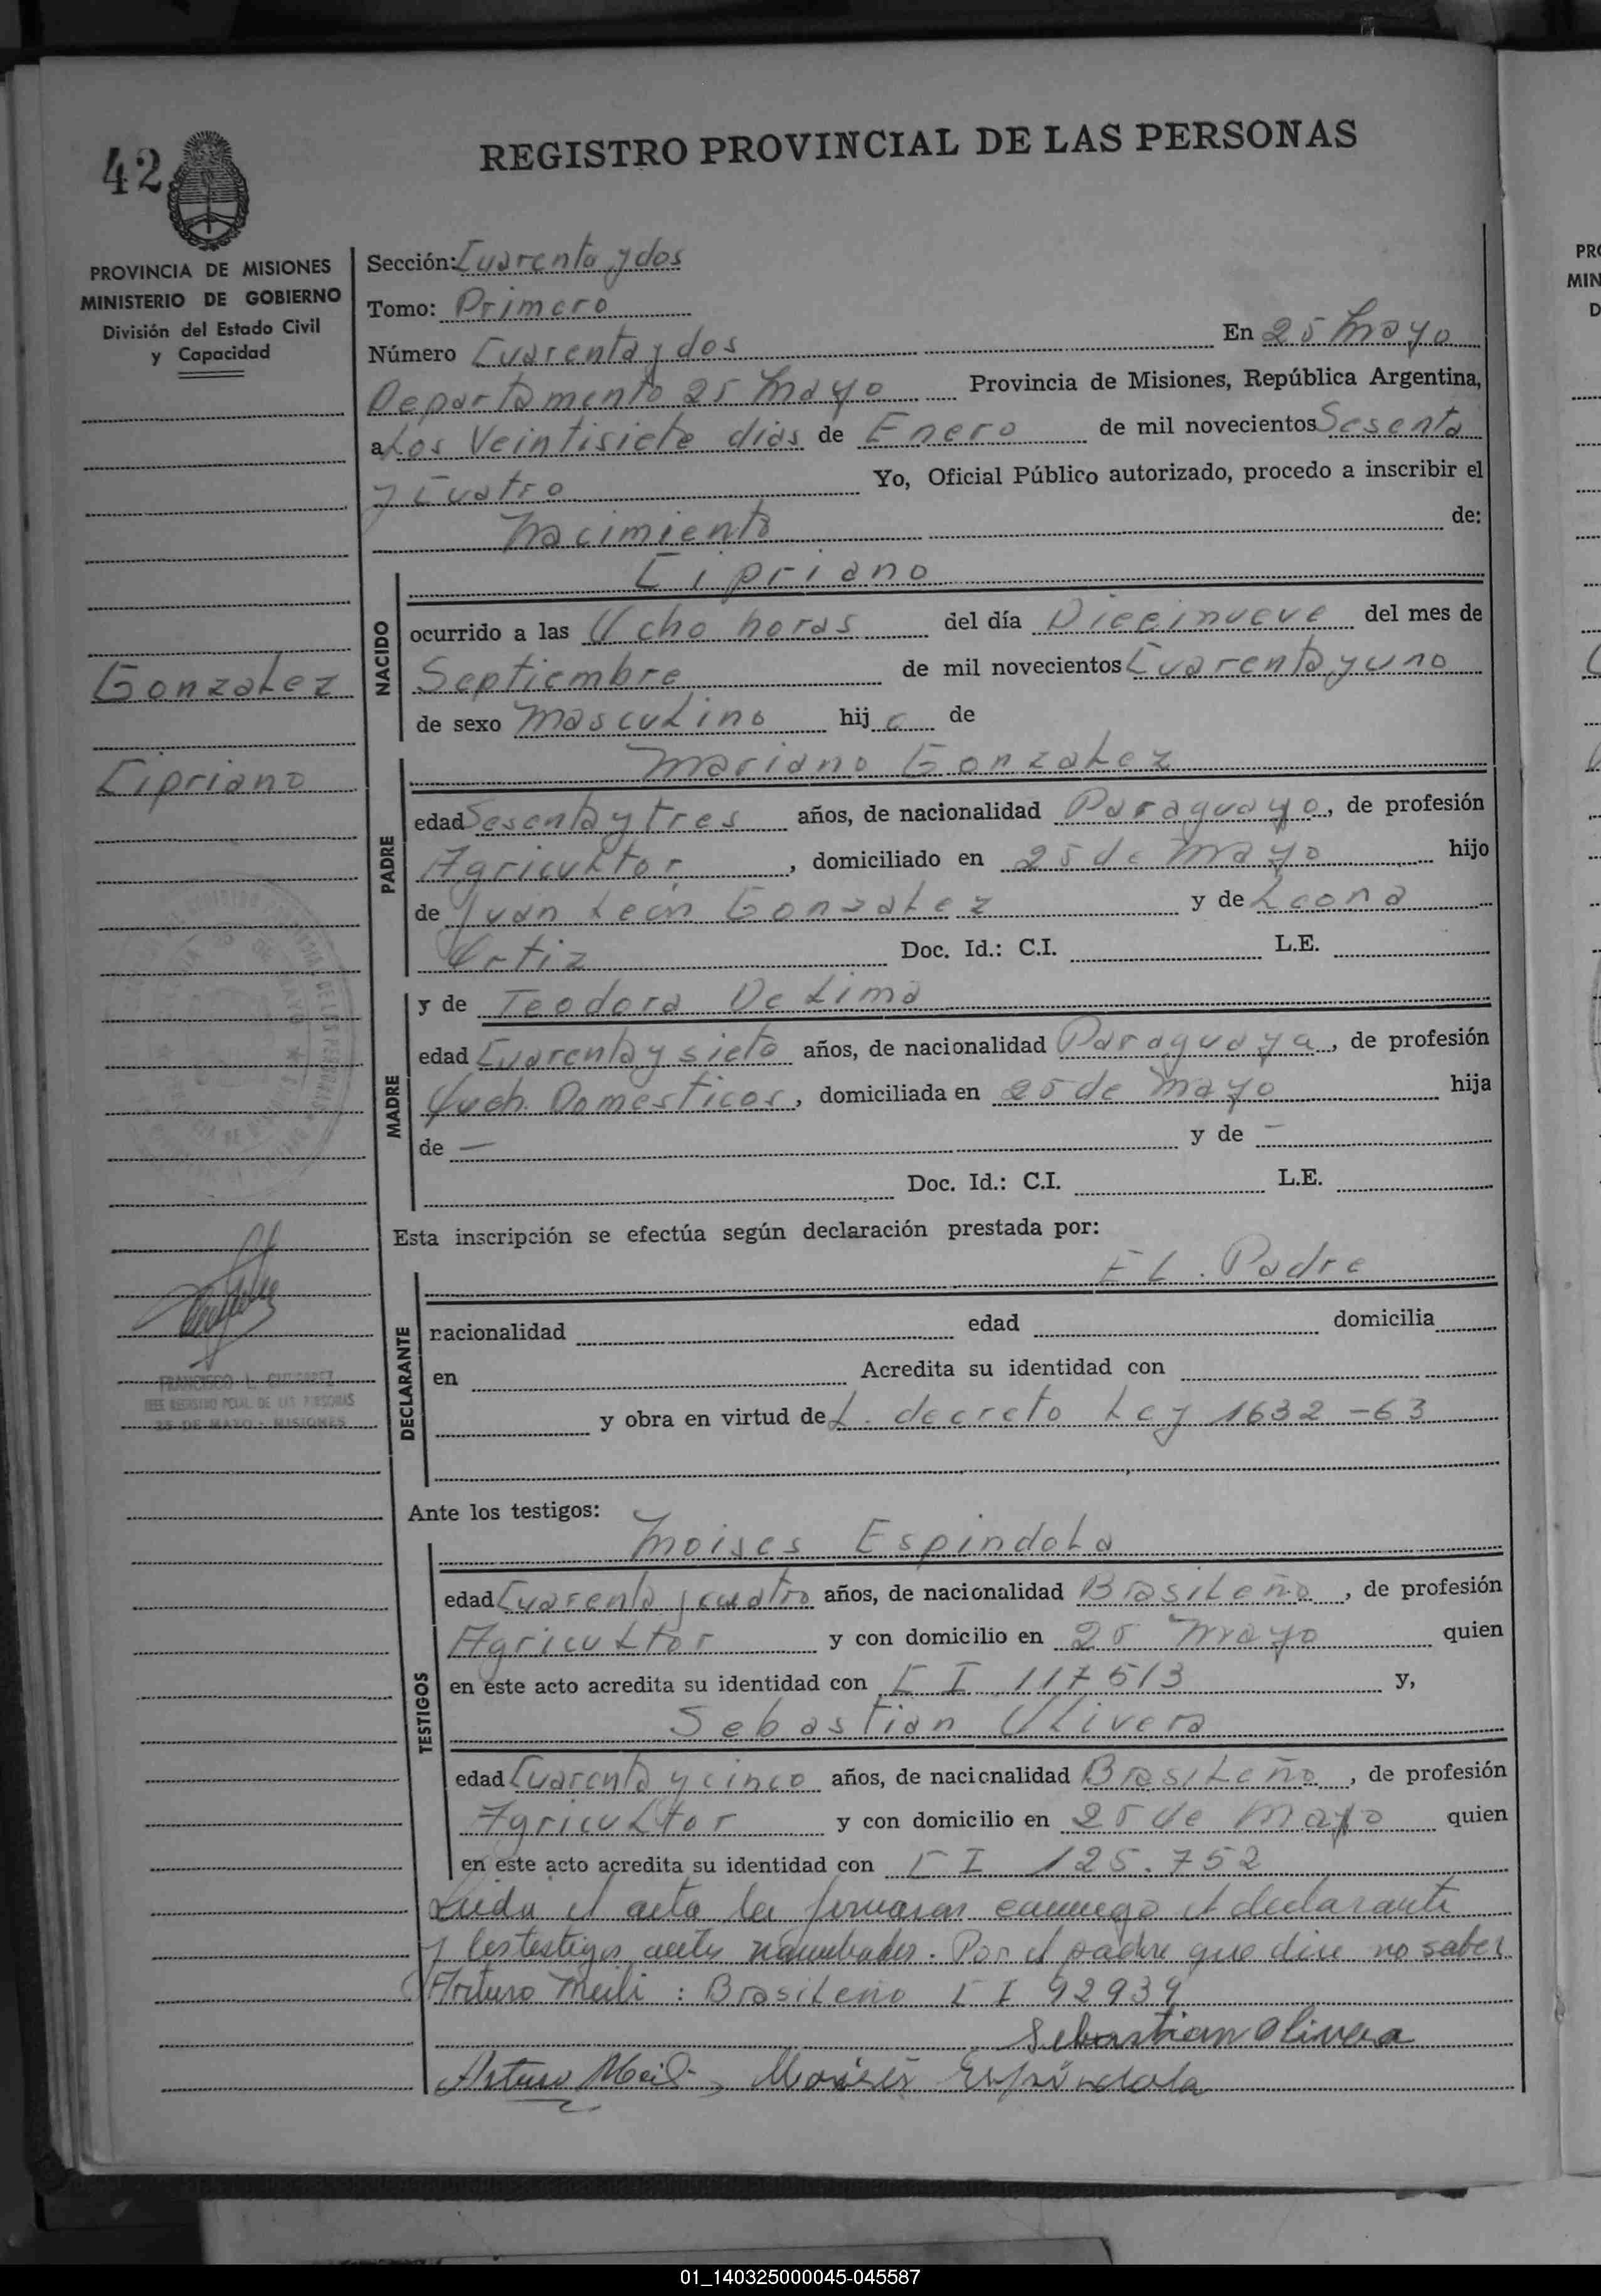 42
REGISTRO PROVINCIAL DE LAS PERSONAS
PROVINCIA DE MISIONES
MINISTERIO DE GOBIERNO
División del Estado Civil
y Capacidad
Gonzalez
Cipriano
Sección: Cuarenta y dos
Tomo: Primero
Número Cuarenta y dos En 25 Mayo
Departamento 25 Mayo Provincia de Misiones, República Argentina,
a Los Veintisiete dias de Enero de mil novecientos Sesenta
y Cuatro Yo, Oficial Público autorizado, procedo a inscribir el
Nacimiento de:
NACIDO
Cipriano
ocurrido a las Ocho horas del día Diecinueve del mes de
Septiembre de mil novecientos Cuarenta y uno
de sexo Masculino hij o de
PADRE
Mariano Gonzalez
edad Sesenta y tres años, de nacionalidad Paraguayo, de profesión
Agricultor, domiciliado en 25 de Mayo hijo
de Juan León Gonzalez y de Leona
Ortiz Doc. Id.: C.I. L.E.
MADRE
y de Teodora De Lima
edad Cuarenta y siete años, de nacionalidad Paraguaya, de profesión
Queh. Domesticos, domiciliada en 25 de Mayo hija
de — y de —
Doc. Id.: C.I. L.E.
Esta inscripción se efectúa según declaración prestada por:
DECLARANTE
EL. Padre
nacionalidad edad domicilia
en Acredita su identidad con
y obra en virtud de L. decreto Ley 1632-63
FRANCISCO L.
JEFE REGISTRO PCIAL. DE LAS PERSONAS
25 DE MAYO - MISIONES
Ante los testigos:
TESTIGOS
Moises Espindola
edad Cuarenta y cuatro años, de nacionalidad Brasileño, de profesión
Agricultor y con domicilio en 25 Mayo quien
en este acto acredita su identidad con C I 117513 y,
Sebastian Olivera
edad Cuarenta y cinco años, de nacionalidad Brasileño, de profesión
Agricultor y con domicilio en 25 de Mayo quien
en este acto acredita su identidad con C I 125.752
Leida el acta la firmaron conmigo el declarante
y los testigos antes nombrados. Por el padre que dice no saber
Arturo Meili : Brasileño C I 92939
Sebastian Olivera
Arturo Meili, Moisés Espíndola
01_140325000045-045587